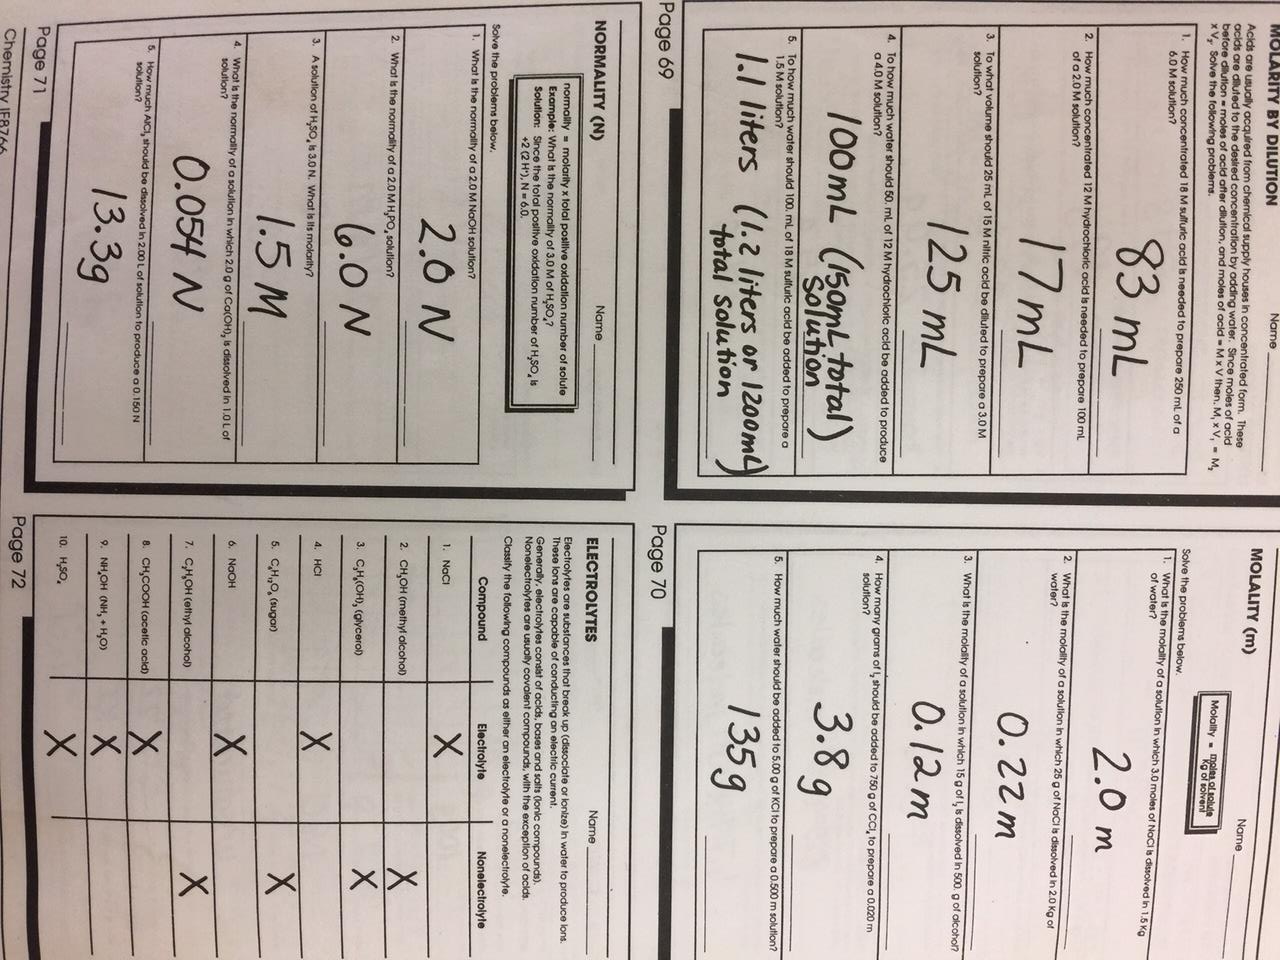 MOLARITY BY DILUTION
Name
Acids are usually acquired from chemical supply houses in concentrated form. These
acids are diluted to the desired concentration by adding water. Since moles of acid
before dilution = moles of acid after dilution, and moles of acid = M x V then, M₁ x V₁ = M₂
x V₂. Solve the following problems.
1. How much concentrated 18 M sulfuric acid is needed to prepare 250 mL of a
6.0 M solution?
83 mL
2. How much concentrated 12 M hydrochloric acid is needed to prepare 100 mL
of a 2.0 M solution?
17 mL
3. To what volume should 25 mL of 15 M nitric acid be diluted to prepare a 3.0 M
solution?
125 mL
4. To how much water should 50. mL of 12 M hydrochloric acid be added to produce
a 4.0 M solution?
100mL (150mL total)
solution
5. To how much water should 100. mL of 18 M sulfuric acid be added to prepare a
1.5 M solution?
1.1 liters (1.2 liters or 1200mL)
total solution
Page 69
MOLALITY (m)
Name
Molality = moles of solute
Kg of solvent
Solve the problems below.
1. What is the molality of a solution in which 3.0 moles of NaCl is dissolved in 1.5 Kg
of water?
2.0 m
2. What is the molality of a solution in which 25 g of NaCl is dissolved in 2.0 Kg of
water?
0.22 m
3. What is the molality of a solution in which 15 g of I₂ is dissolved in 500. g of alcohol?
0.12 m
4. How many grams of I₂ should be added to 750 g of CCl₄ to prepare a 0.020 m
solution?
3.8 g
5. How much water should be added to 5.00 g of KCl to prepare a 0.500 m solution?
135 g
Page 70
NORMALITY (N)
Name
normality = molarity x total positive oxidation number of solute
Example: What is the normality of 3.0 M of H₂SO₄?
Solution: Since the total positive oxidation number of H₂SO₄ is
+2 (2 H⁺), N = 6.0.
Solve the problems below.
1. What is the normality of a 2.0 M NaOH solution?
2.0 N
2. What is the normality of a 2.0 M H₃PO₄ solution?
6.0 N
3. A solution of H₂SO₄ is 3.0 N. What is its molarity?
1.5 M
4. What is the normality of a solution in which 2.0 g of Ca(OH)₂ is dissolved in 1.0 L of
solution?
0.054 N
5. How much AlCl₃ should be dissolved in 2.00 L of solution to produce a 0.150 N
solution?
13.3g
Page 71
Chemistry IF8766
ELECTROLYTES
Name
Electrolytes are substances that break up (dissociate or ionize) in water to produce ions.
These ions are capable of conducting an electric current.
Generally, electrolytes consist of acids, bases and salts (ionic compounds).
Nonelectrolytes are usually covalent compounds, with the exception of acids.
Classify the following compounds as either an electrolyte or a nonelectrolyte.
Compound Electrolyte Nonelectrolyte
1. NaCl X
2. CH₃OH (methyl alcohol) X
3. C₃H₅(OH)₃ (glycerol) X
4. HCl X
5. C₆H₁₂O₆ (sugar) X
6. NaOH X
7. C₂H₅OH (ethyl alcohol) X
8. CH₃COOH (acetic acid) X
9. NH₄OH (NH₃ + H₂O) X
10. H₂SO₄ X
Page 72